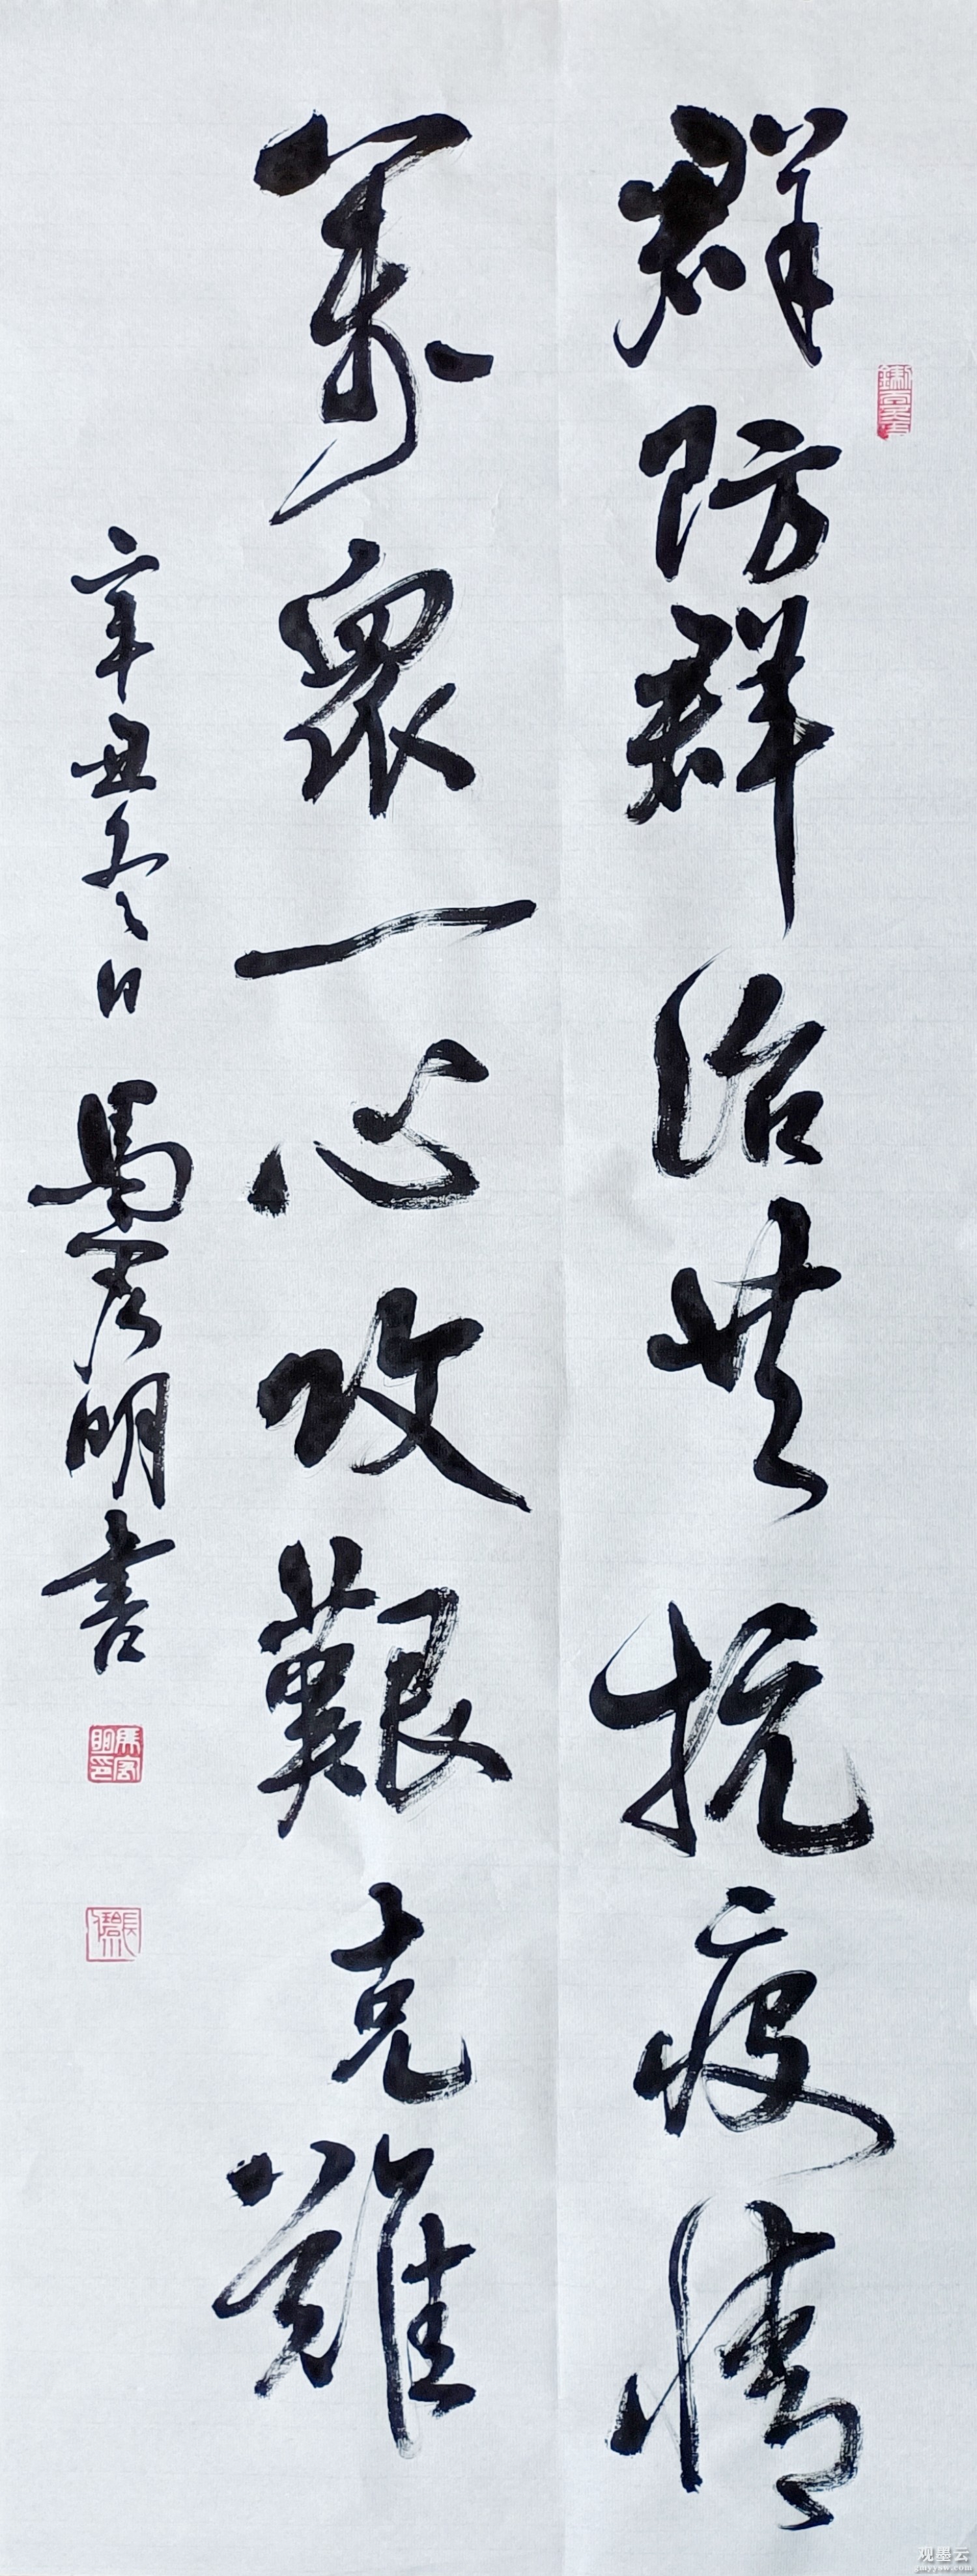 群防群治共抗疫情
萬眾一心攻艱克難
辛丑冬日 馬客明書
观墨云
gmyysw.com